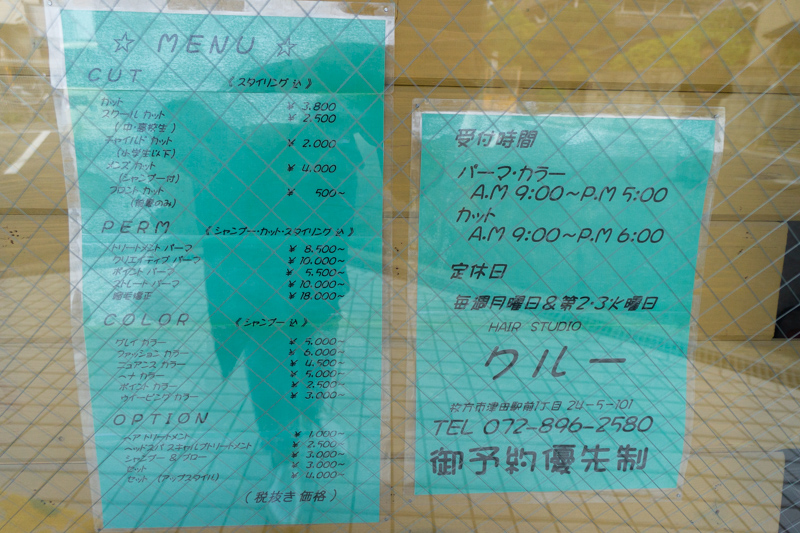 ☆ MENU ☆
CUT 《スタイリング込》
カット ¥3,800
スクール カット ¥2,500
(中・高校生)
チャイルド カット ¥2,000
(小学生以下)
メンズ カット ¥4,000
(シャンプー付)
フロント カット ¥500~
(前髪のみ)
PERM 《シャンプー・カット・スタイリング込》
トリートメント パーマ ¥8,500~
クリエイティブ パーマ ¥10,000~
ポイント パーマ ¥5,500~
ストレート パーマ ¥10,000~
縮毛矯正 ¥18,000~
COLOR 《シャンプー込》
グレイ カラー ¥5,000~
ファッション カラー ¥6,000~
ニュアンス カラー ¥4,500~
ヘナ カラー ¥5,000~
ポイント カラー ¥2,500~
ウイービング カラー ¥3,000~
OPTION
ヘアトリートメント ¥1,000~
ヘッドスパ スキャルプトリートメント ¥2,500~
シャンプー & ブロー ¥3,000~
セット ¥3,000~
セット (アップスタイル) ¥4,000~
(税抜き価格)
受付時間
パーマ・カラー
A.M 9:00~P.M 5:00
カット
A.M 9:00~P.M 6:00
定休日
毎週月曜日&第2・3火曜日
HAIR STUDIO
クルー
枚方市津田駅前1丁目 24-5-101
TEL 072-896-2580
御予約優先制